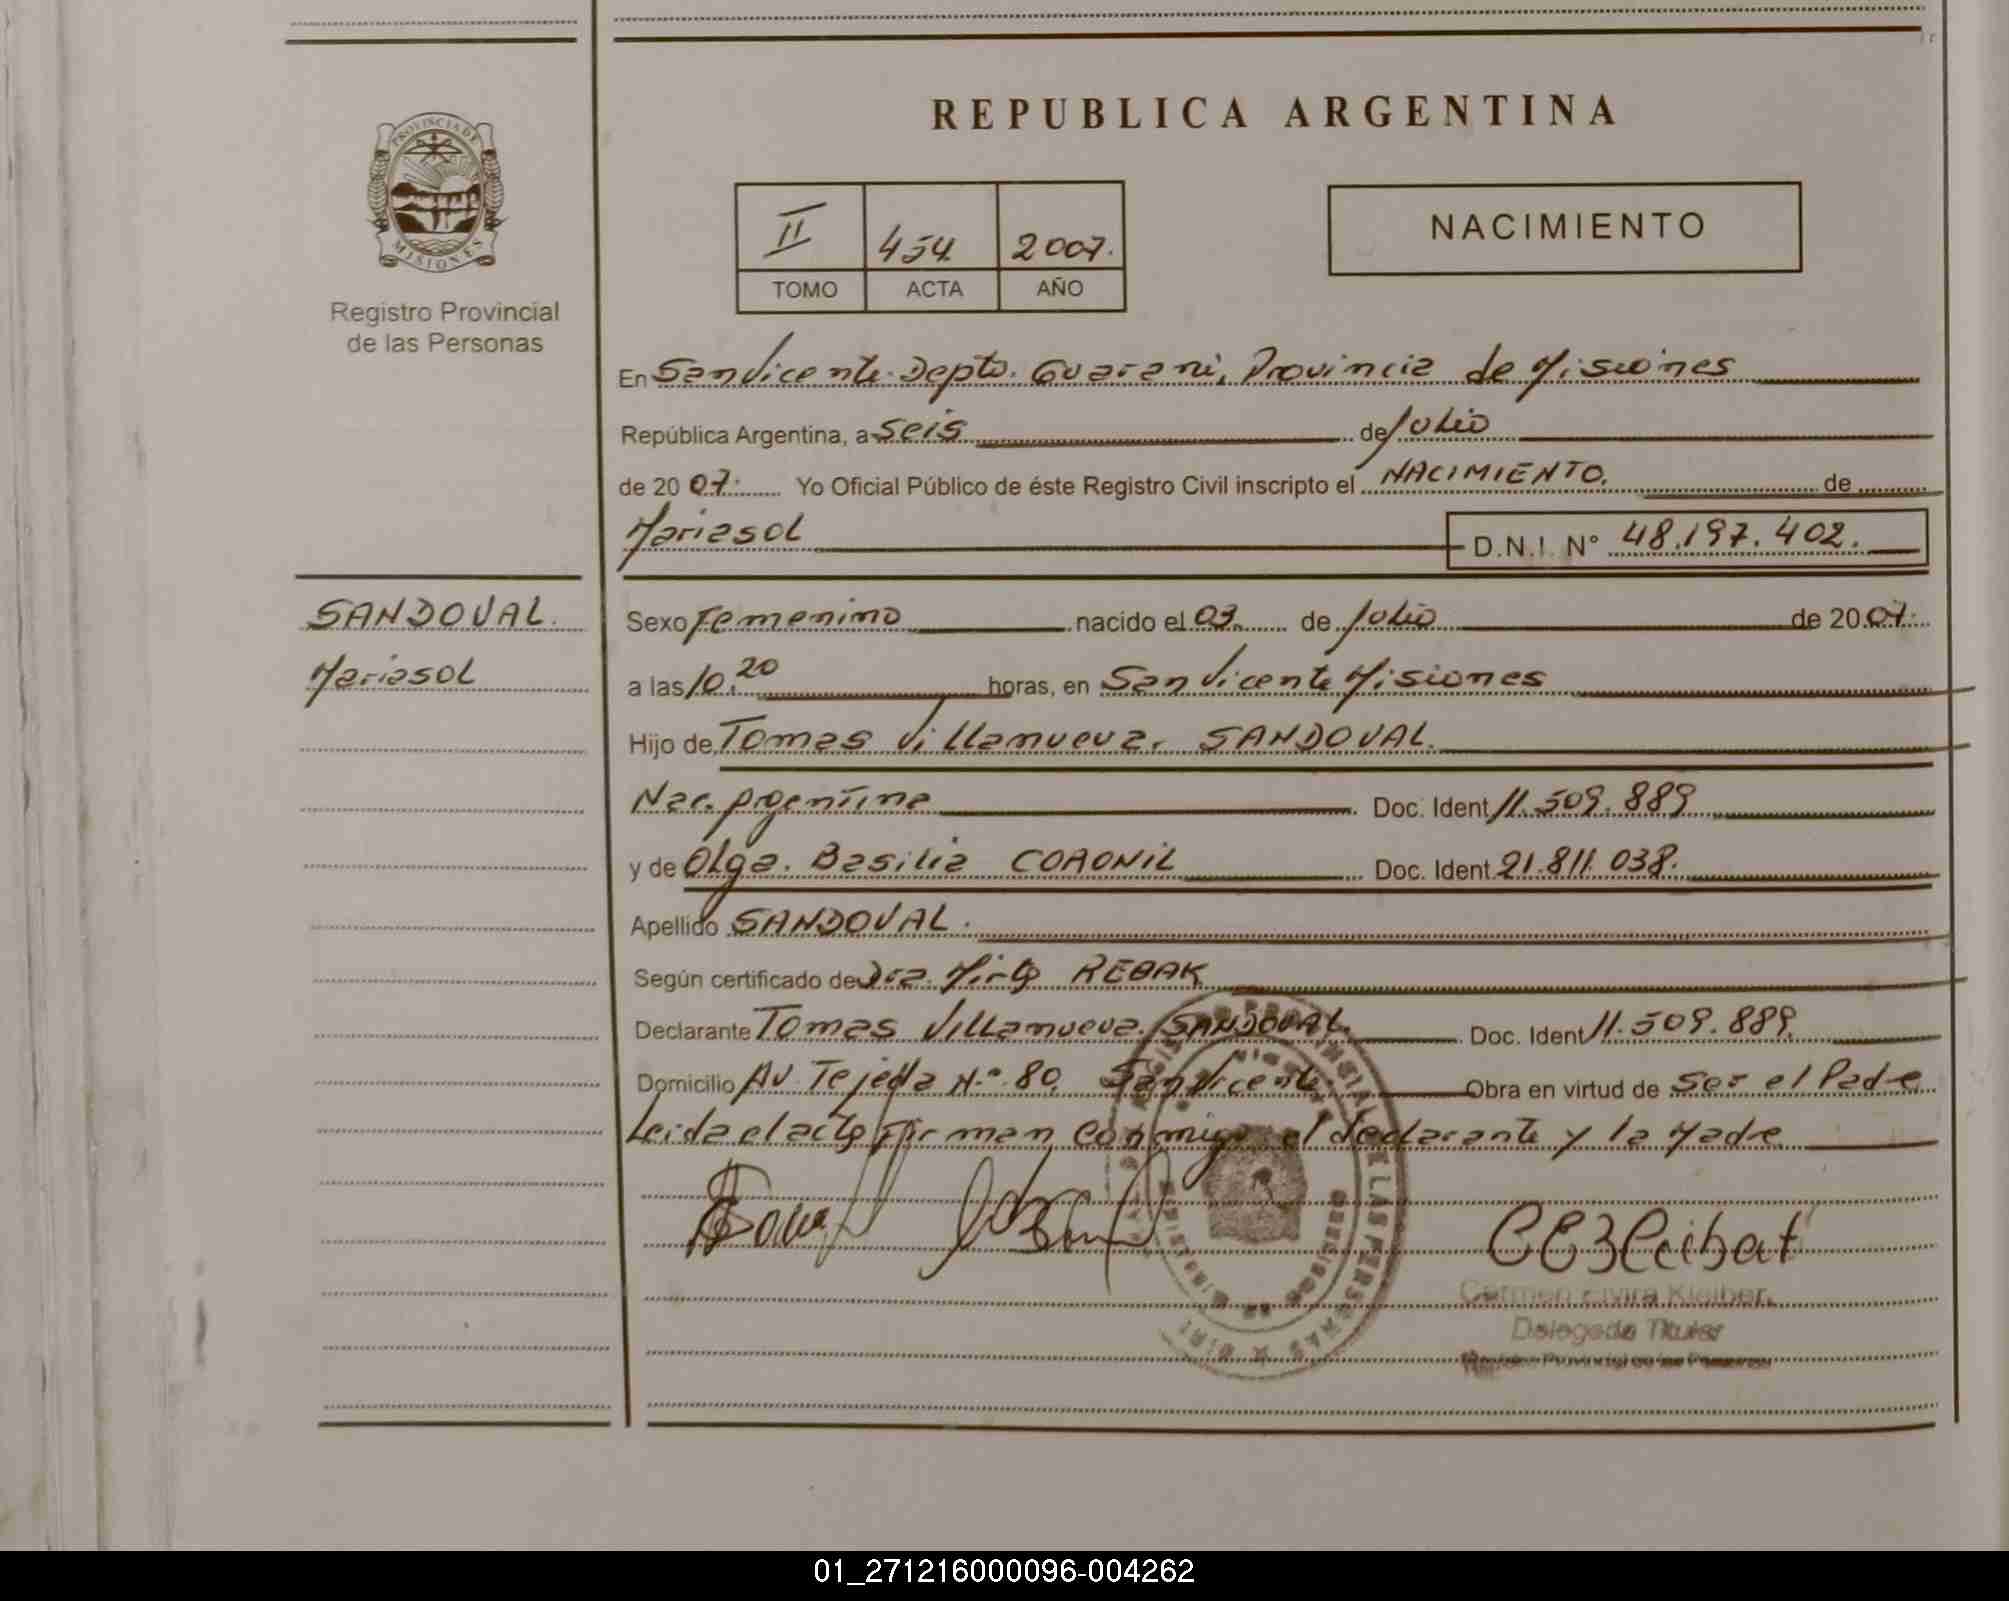 REPUBLICA ARGENTINA
PROVINCIA DE
MISIONES
Registro Provincial
de las Personas
II 454 2007.
TOMO ACTA AÑO
NACIMIENTO
En San Vicente Depto. Guarani, Provincia de Misiones
República Argentina, a seis de Julio
de 20 07. Yo Oficial Público de éste Registro Civil inscripto el NACIMIENTO. de
Mariasol D.N.I. N° 48.197.402.
SANDOVAL.
Mariasol
Sexo Femenino nacido el 03. de Julio de 20 07.
a las 10,20 horas, en San Vicente Misiones
Hijo de Tomas Villanueva. SANDOVAL.
Nac. Argentina Doc. Ident 11.509.889
y de Olga. Basilia CORONIL Doc. Ident. 21.811.038.
Apellido SANDOVAL.
Según certificado de Dra. Mirta REBAK
Declarante Tomas Villanueva. SANDOVAL. Doc. Ident 11.509.889.
Domicilio Av. Tejeda N.° 80. San Vicente. Obra en virtud de ser el Padre
Leida el acta firman conmigo el declarante y la Madre
Carmen Elvira Kleiber
Delegada Titular
Registro Provincial de las Personas
01_271216000096-004262